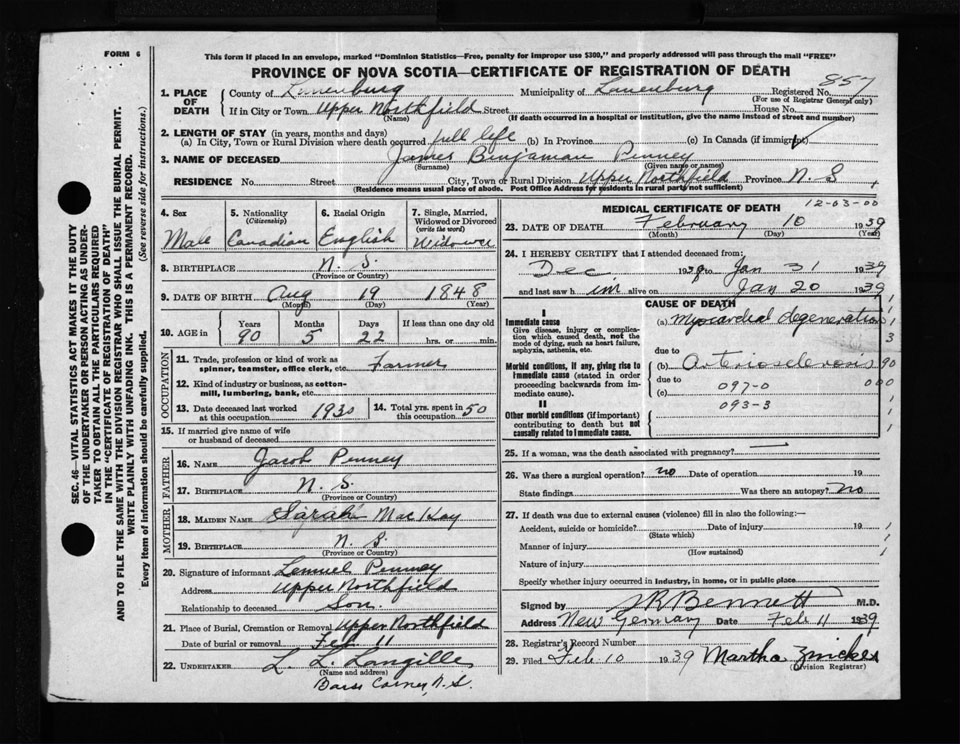 FORM 6
This form if placed in an envelope, marked "Dominion Statistics—Free, penalty for improper use $300," and properly addressed will pass through the mail "FREE"
PROVINCE OF NOVA SCOTIA—CERTIFICATE OF REGISTRATION OF DEATH
857
1. PLACE OF DEATH
County of Lunenburg Municipality of Lunenburg Registered No.
(For use of Registrar General only)
If in City or Town Upper Northfield Street House No.
(Name) (If death occurred in a hospital or institution, give the name instead of street and number)
2. LENGTH OF STAY (in years, months and days)
(a) In City, Town or Rural Division where death occurred full life (b) In Province (c) In Canada (if immigrant)
3. NAME OF DECEASED James Binjaman Penney
(Surname) (Given name or names)
RESIDENCE No. Street City, Town or Rural Division Upper Northfield Province N.S
(Residence means usual place of abode. Post Office Address for residents in rural parts not sufficient)
4. Sex Male
5. Nationality (Citizenship) Canadian
6. Racial Origin English
7. Single, Married, Widowed or Divorced (write the word) Widower
8. BIRTHPLACE N.S.
(Province or Country)
9. DATE OF BIRTH Aug 19 1848
(Month) (Day) (Year)
10. AGE in Years Months Days If less than one day old
90 5 22 hrs. or min.
OCCUPATION
11. Trade, profession or kind of work as spinner, teamster, office clerk, etc. Farmer
12. Kind of industry or business, as cotton-mill, lumbering, bank, etc.
13. Date deceased last worked at this occupation 1930
14. Total yrs. spent in this occupation 50
15. If married give name of wife or husband of deceased
FATHER
16. NAME Jacob Penney
17. BIRTHPLACE N.S.
(Province or Country)
MOTHER
18. MAIDEN NAME Sarah MacKay
19. BIRTHPLACE N.S.
(Province or Country)
20. Signature of informant Lemuel Penney
Address Upper Northfield
Relationship to deceased Son
21. Place of Burial, Cremation or Removal Upper Northfield
Date of burial or removal Feb 11
22. UNDERTAKER L. L. Langille
(Name and address)
Corner, N.S.
MEDICAL CERTIFICATE OF DEATH
12-03-00
23. DATE OF DEATH February 10 1939
(Month) (Day) (Year)
24. I HEREBY CERTIFY that I attended deceased from:
Dec 193 to Jan 31 1939
and last saw him alive on Jan 20 1939
CAUSE OF DEATH
I
Immediate cause
Give disease, injury or complication which caused death, not the mode of dying, such as heart failure, asphyxia, asthenia, etc.
(a) Myocardial degeneration
due to
Morbid conditions, if any, giving rise to immediate cause (stated in order proceeding backwards from immediate cause).
(b) Arteriosclerosis
due to
097-0
(c)
093-3
II
Other morbid conditions (if important) contributing to death but not causally related to immediate cause.
3
90
000
25. If a woman, was the death associated with pregnancy?
26. Was there a surgical operation? no Date of operation 19
State findings Was there an autopsy? no
27. If death was due to external causes (violence) fill in also the following:—
Accident, suicide or homicide? Date of injury 19
(State which)
Manner of injury
(How sustained)
Nature of injury
Specify whether injury occurred in industry, in home, or in public place
Signed by J R Bennett M.D.
Address New Germany Date Feb 11 1939
28. Registrar's Record Number
29. Filed Feb 10 1939 Martha Zwicker
(Division Registrar)
SEC. 46—VITAL STATISTICS ACT MAKES IT THE DUTY
OF THE UNDERTAKER OR PERSON ACTING AS UNDER-
TAKER TO OBTAIN ALL THE PARTICULARS REQUIRED
IN THE "CERTIFICATE OF REGISTRATION OF DEATH"
AND TO FILE THE SAME WITH THE DIVISION REGISTRAR WHO SHALL ISSUE THE BURIAL PERMIT.
WRITE PLAINLY WITH UNFADING INK. THIS IS A PERMANENT RECORD.
Every item of information should be carefully supplied. (See reverse side for instructions.)